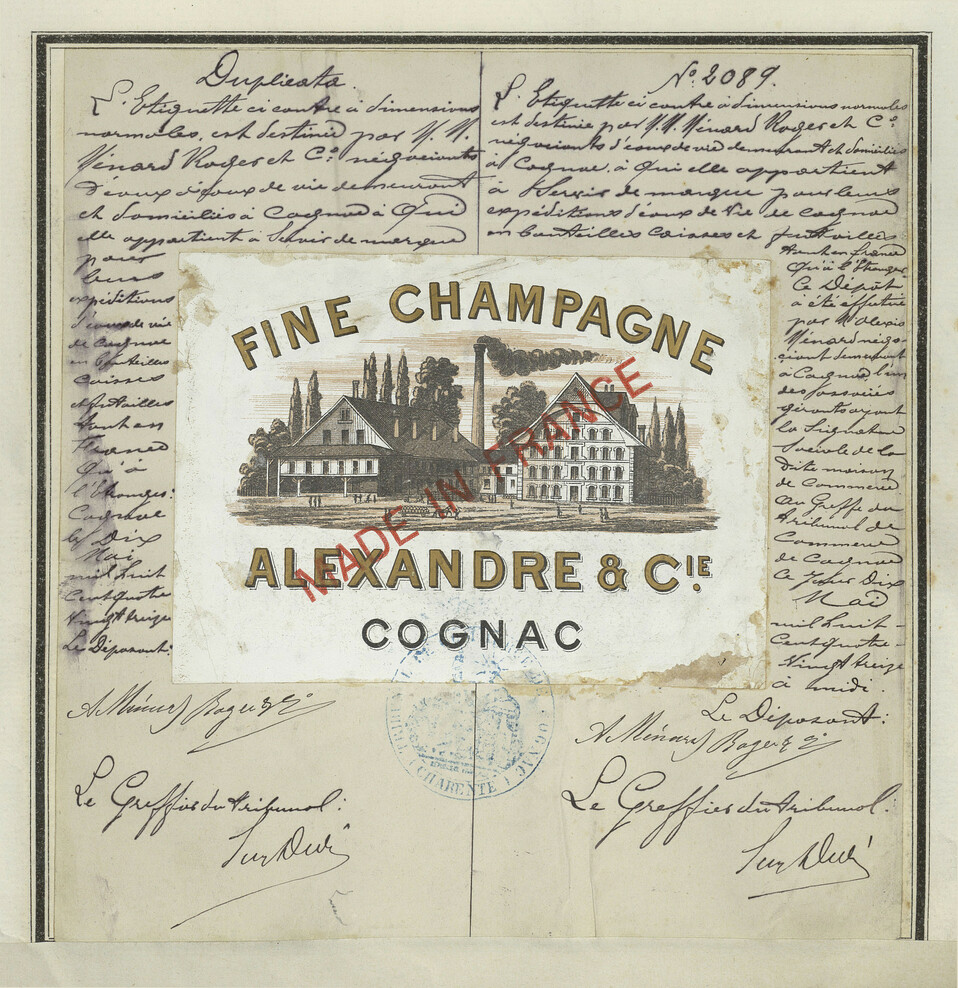 Duplicata.
L'Etiquette ci contre à dimensions
normales, est destinée par M.M.
Ménard Roger et Cº négociants
d'eaux de vie demeurant
et domiciliés à Cognac à Qui
elle appartient à Servir de marque
pour
leurs
expéditions
d'eaux de vie
de Cognac
en bouteilles
Caisses
et futailles
tant en
France
Qu'à
l'Etranger:
Cognac
le Dix
Mai
mil huit
Cent quatre
Vingt treize
Le Déposant:
A Ménard Roger & Cº
Le Greffier du tribunal:
Nº 2089.
L'Etiquette ci contre à dimensions normales
est destinée par M.M. Ménard Roger et Cº
négociants d'eaux de vie demeurant et domiciliés
à Cognac, à Qui elle appartient
à Servir de marque pour leurs
expéditions d'eaux de Vie de Cognac
en bouteilles Caisses et futailles
tant en France
Qu'à l'Etranger
Ce Dépôt
à été effectué
par M. Alexis
Ménard négo-
ciant demeurant
à Cognac, l'un
des Associés
gérants ayant
la Signature
Sociale de la
dite maison
de Commerce
au Greffe du
tribunal de
Commerce
de Cognac
Ce Jour Dix
Mai
mil huit-
Cent quatre-
Vingt treize
à midi.
Le Déposant:
A Ménard Roger & Cº
Le Greffier du tribunal:
FINE CHAMPAGNE
MADE IN FRANCE
ALEXANDRE & CIE
COGNAC
COGNAC (CHARENTE)